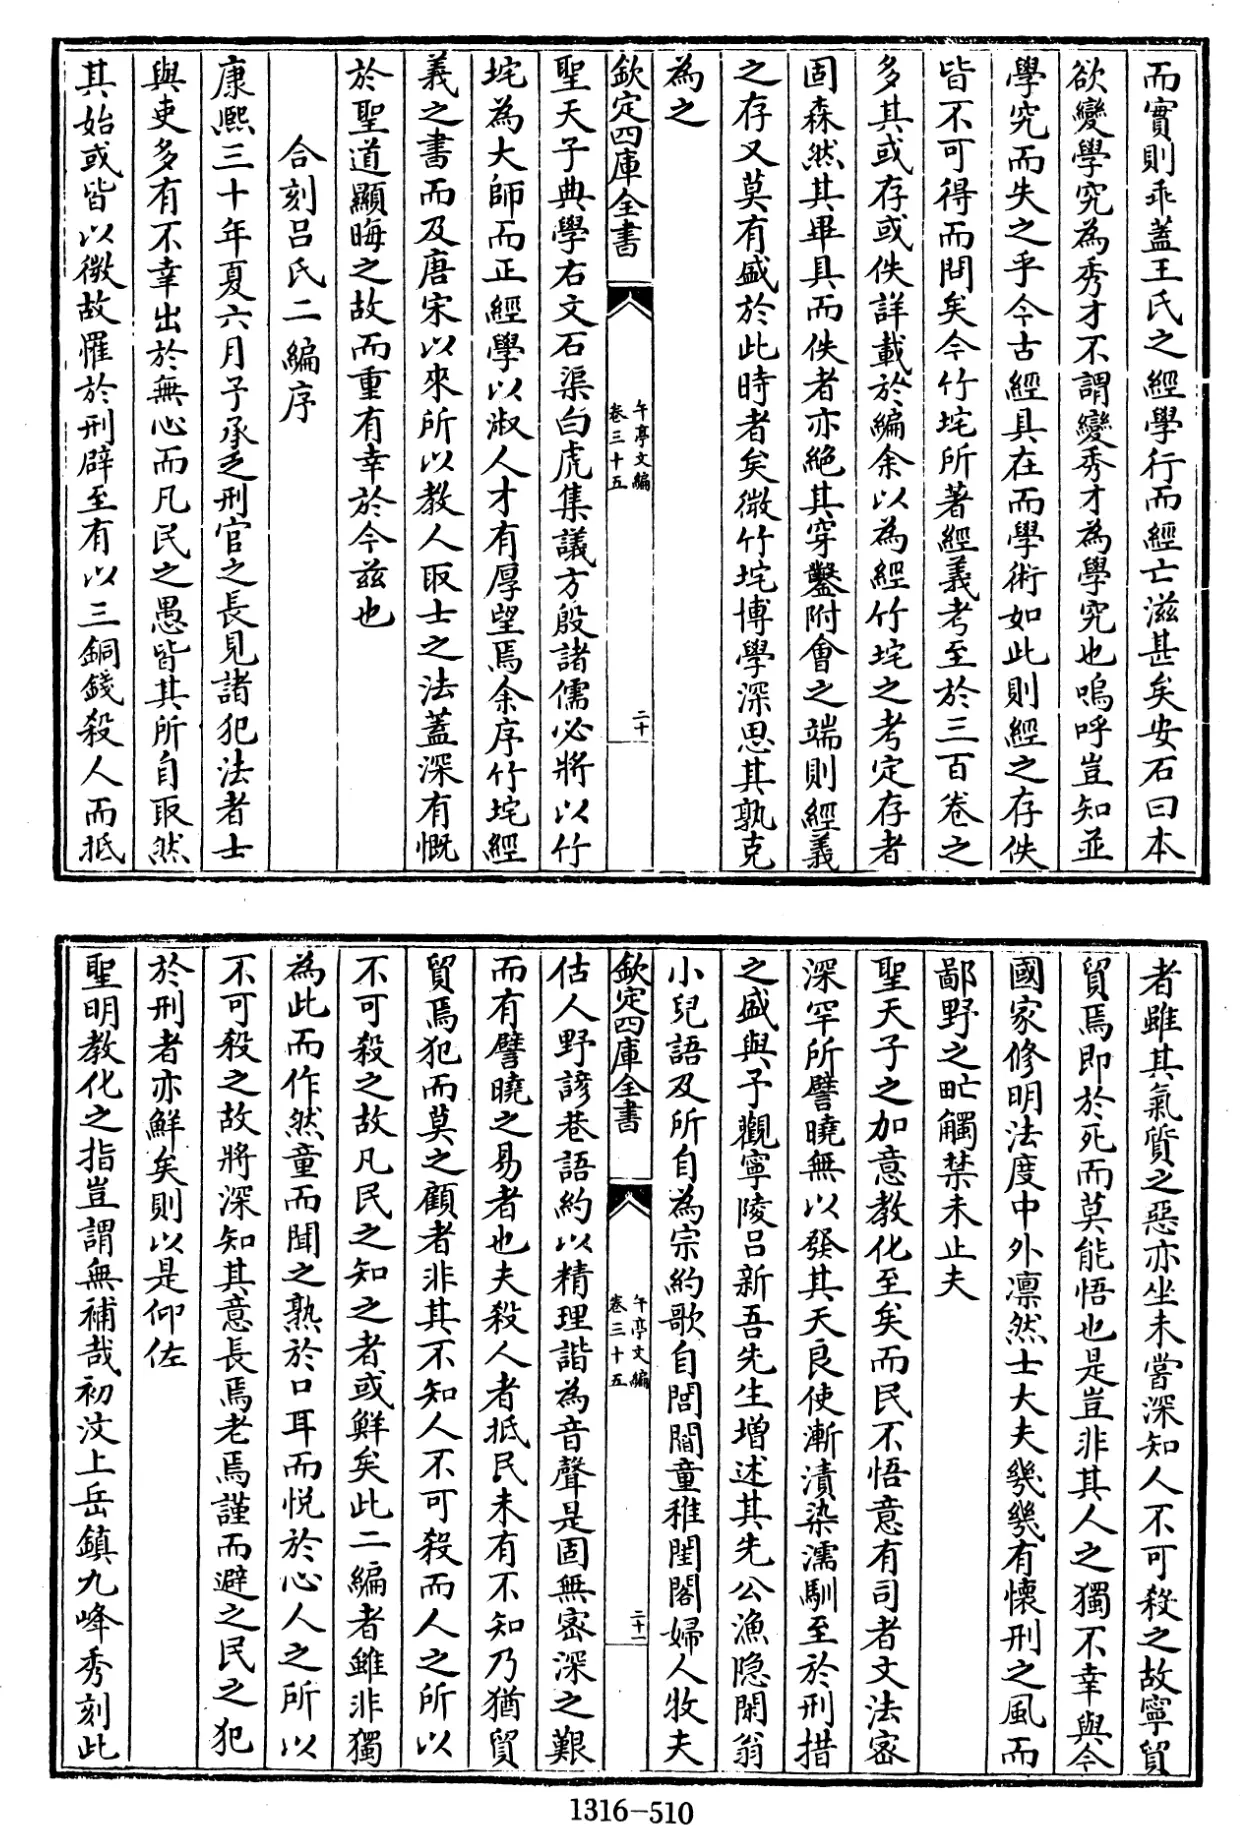 而實則乖蓋王氏之經學行而經亡滋甚矣安石曰本
欲變學究為秀才不謂變秀才為學究也嗚呼豈知並
學究而失之乎今古經具在而學術如此則經之存佚
皆不可得而問矣今竹垞所著經義考至於三百卷之
多其或存或佚詳載於編余以為經竹垞之考定存者
固森然其畢具而佚者亦絶其穿鑿附會之端則經義
之存又莫有盛於此時者矣微竹垞博學深思其孰克
為之
欽定四庫全書
午亭文編
卷三十五
二十
聖天子典學右文石渠白虎集議方殷諸儒必將以竹
垞為大師而正經學以淑人才有厚望焉余序竹垞經
義之書而及唐宋以來所以教人取士之法蓋深有慨
於聖道顯晦之故而重有幸於今兹也
合刻呂氏二編序
康熙三十年夏六月予承乏刑官之長見諸犯法者士
與吏多有不幸出於無心而凡民之愚皆其所自取然
其始或皆以微故罹於刑辟至有以三銅錢殺人而抵
者雖其氣質之惡亦坐未嘗深知人不可殺之故寧貿
貿焉即於死而莫能悟也是豈非其人之獨不幸與今
國家修明法度中外凛然士大夫幾幾有懷刑之風而
鄙野之甿觸禁未止夫
聖天子之加意教化至矣而民不悟意有司者文法密
深罕所譬曉無以發其天良使漸漬染濡馴至於刑措
之盛與予觀寧陵呂新吾先生增述其先公漁隐閑翁
小兒語及所自為宗約歌自閭閻童稚閨閣婦人牧夫
欽定四庫全書
午亭文編
卷三十五
二十一
估人野諺巷語約以精理諧為音聲是固無密深之艱
而有譬曉之易者也夫殺人者抵民未有不知乃猶貿
貿焉犯而莫之顧者非其不知人不可殺而人之所以
不可殺之故凡民之知之者或鮮矣此二編者雖非獨
為此而作然童而聞之熟於口耳而悦於心人之所以
不可殺之故將深知其意長焉老焉謹而避之民之犯
於刑者亦鮮矣則以是仰佐
聖明教化之指豈謂無補哉初汶上岳鎮九峰秀刻此
1316-510